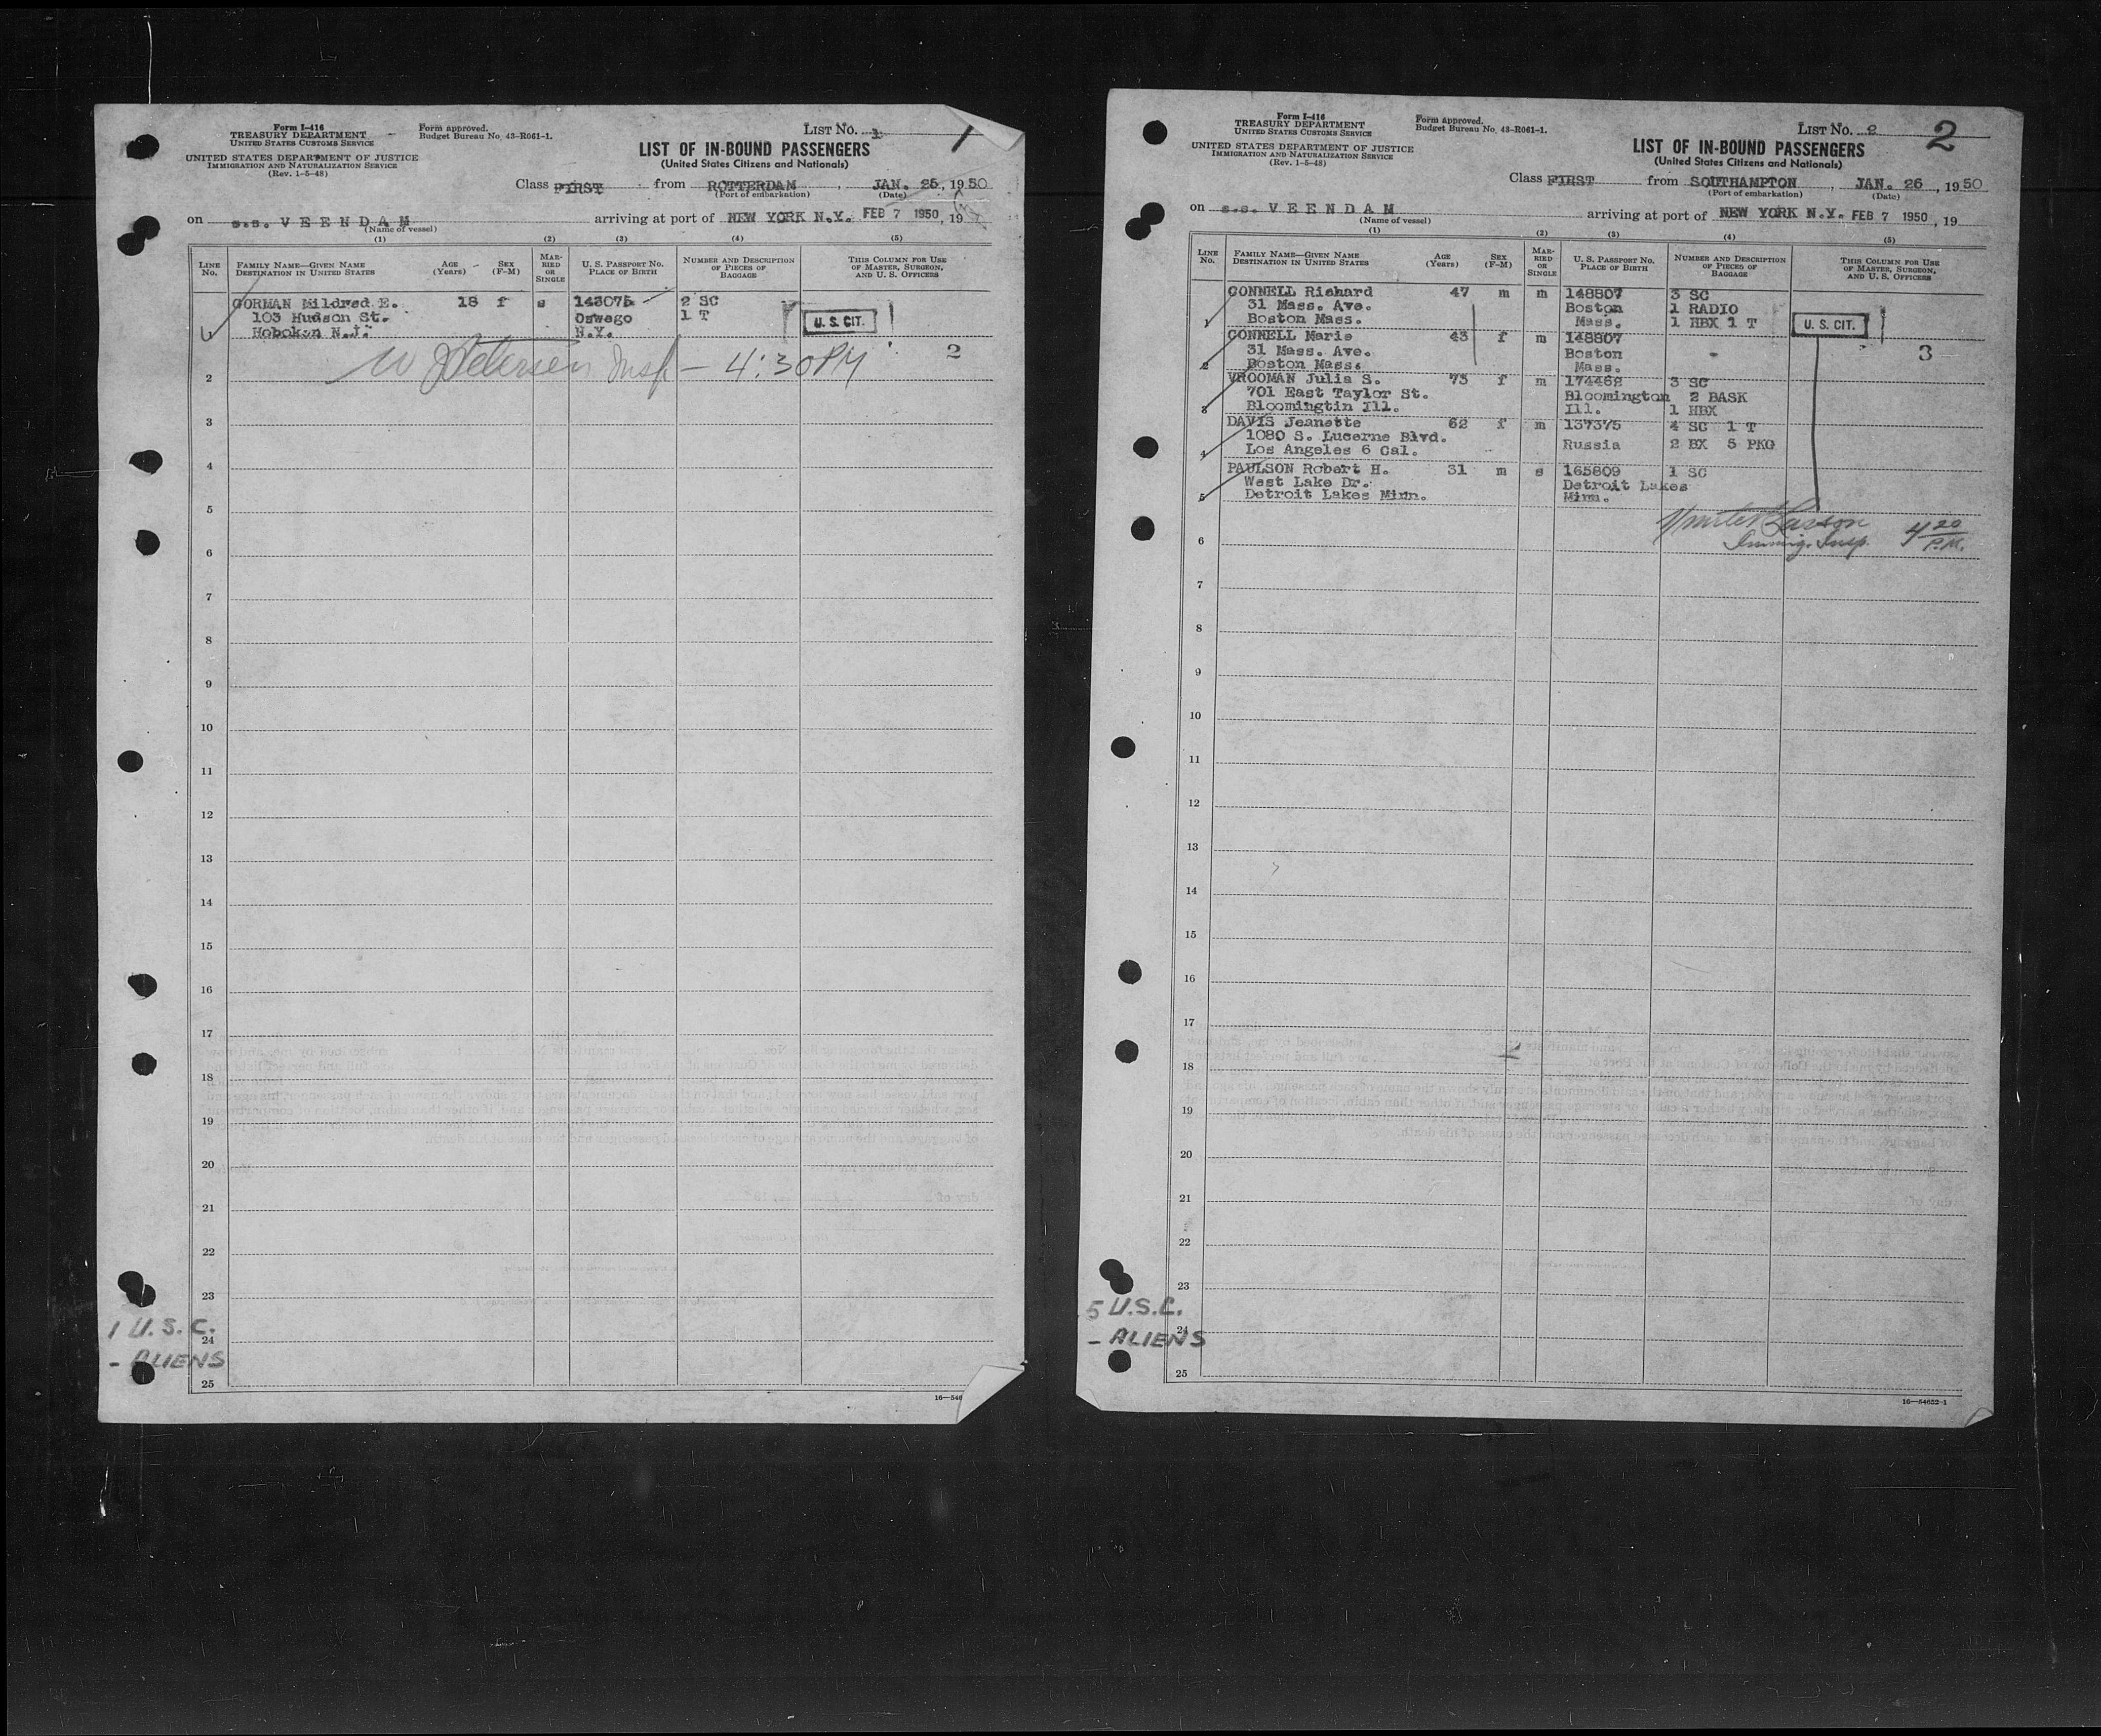 Form I-416
TREASURY DEPARTMENT
UNITED STATES CUSTOMS SERVICE
UNITED STATES DEPARTMENT OF JUSTICE
IMMIGRATION AND NATURALIZATION SERVICE
(Rev. 1-5-48)
Form approved.
Budget Bureau No. 43-R061-1.
LIST NO. 1
1
LIST OF IN-BOUND PASSENGERS
(United States Citizens and Nationals)
Class FIRST from ROTTERDAM, JAN. 25, 1950
(Port of embarkation) (Date)
on s.s. VEENDAM arriving at port of NEW YORK N.Y. FEB 7 1950, 19
(Name of vessel)
(1) (2) (3) (4) (5)
LINE No. FAMILY NAME—GIVEN NAME DESTINATION IN UNITED STATES AGE (Years) SEX (F-M) MARRIED OR SINGLE U. S. PASSPORT NO. PLACE OF BIRTH NUMBER AND DESCRIPTION OF PIECES OF BAGGAGE THIS COLUMN FOR USE OF MASTER, SURGEON, AND U. S. OFFICERS
GORMAN Mildred E. 18 f s 143075 2 SC
103 Hudson St. Oswego 1 T U. S. CIT.
Hoboken N.J. N.Y.
W J Petersen Insp — 4:30 PM 2
2
3
4
5
6
7
8
9
10
11
12
13
14
15
16
17
18
19
20
21
22
23
24
25
1 U.S.C.
- ALIENS
16—546
Form I-416
TREASURY DEPARTMENT
UNITED STATES CUSTOMS SERVICE
UNITED STATES DEPARTMENT OF JUSTICE
IMMIGRATION AND NATURALIZATION SERVICE
(Rev. 1-5-48)
Form approved.
Budget Bureau No. 43-R061-1.
LIST NO. 2
2
LIST OF IN-BOUND PASSENGERS
(United States Citizens and Nationals)
Class FIRST from SOUTHAMPTON, JAN. 26, 1950
(Port of embarkation) (Date)
on s.s. VEENDAM arriving at port of NEW YORK N.Y. FEB 7 1950, 19
(Name of vessel)
(1) (2) (3) (4) (5)
LINE No. FAMILY NAME—GIVEN NAME DESTINATION IN UNITED STATES AGE (Years) SEX (F-M) MARRIED OR SINGLE U. S. PASSPORT NO. PLACE OF BIRTH NUMBER AND DESCRIPTION OF PIECES OF BAGGAGE THIS COLUMN FOR USE OF MASTER, SURGEON, AND U. S. OFFICERS
CONNELL Richard 47 m m 148807 3 SC
31 Mass. Ave. Boston 1 RADIO
1 Boston Mass. Mass. 1 HBX 1 T U. S. CIT.
CONNELL Marie 43 f m 148807
31 Mass. Ave. Boston - 3
2 Boston Mass. Mass.
VROOMAN Julia S. 73 f m 174468 3 SC
701 East Taylor St. Bloomington 2 BASK
3 Bloomingtin Ill. Ill. 1 HBX
DAVIS Jeanette 62 f m 137375 4 SC 1 T
1080 S. Lucerne Blvd. Russia 2 BX 5 PKG
4 Los Angeles 6 Cal.
PAULSON Robert H. 31 m s 165809 1 SC
West Lake Dr. Detroit Lakes
5 Detroit Lakes Minn. Minn.
Immig. Insp. 4 20 P.M.
6
7
8
9
10
11
12
13
14
15
16
17
18
19
20
21
22
23
24
25
5 U.S.C.
- ALIENS
16—54652-1